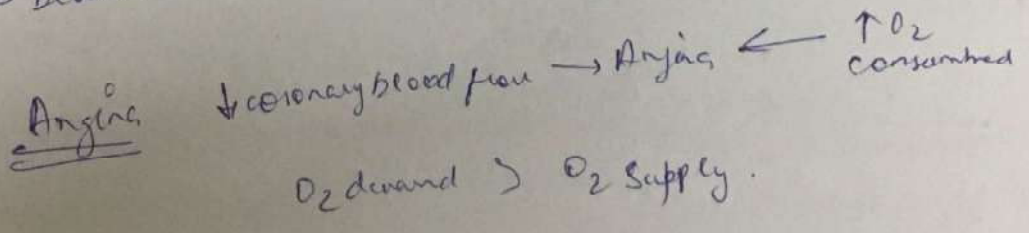 ↑ O2
Angina ↓ coronary blood flow → Angina ← consumbed
O2 demand > O2 supply.